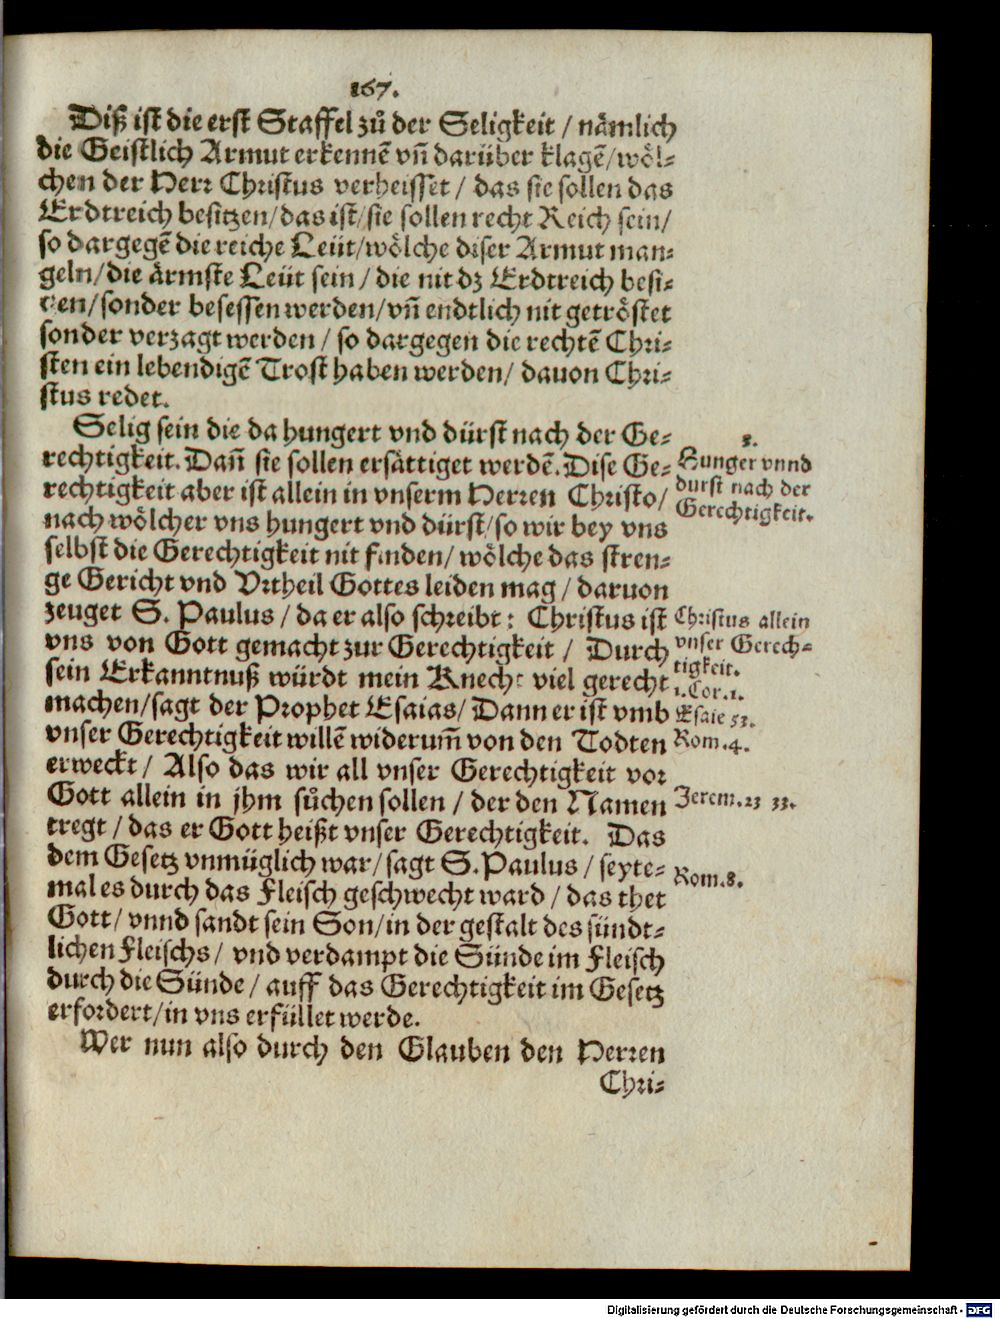 167.
Diß ist die erst Staffel zů der Seligkeit / nämlich
die Geistlich Armut erkennē vn̄ darüber klagē/wöl-
chen der Herr Christus verheisset / das sie sollen das
Erdtreich besitzen/das ist/sie sollen recht Reich sein/
so dargegē die reiche Leüt/wölche diser Armut man-
geln/die ärmste Leüt sein / die nit dz Erdtreich besi-
tzen/sonder besessen werden/vn̄ endtlich nit getröstet
sonder verzagt werden / so dargegen die rechtē Chri-
sten ein lebendigē Trost haben werden/ dauon Chri-
stus redet.
Selig sein die da hungert vnd dürst nach der Ge-
rechtigkeit. Dan̄ sie sollen ersättiget werdē. Dise Ge-
rechtigkeit aber ist allein in vnserm Herren Christo/
nach wölcher vns hungert vnd dürst/so wir bey vns
selbst die Gerechtigkeit nit finden/ wölche das stren-
ge Gericht vnd Vrtheil Gottes leiden mag / daruon
zeuget S. Paulus / da er also schreibt: Christus ist
vns von Gott gemacht zur Gerechtigkeit / Durch
sein Erkanntnuß würdt mein Knecht viel gerecht
machen/sagt der Prophet Esaias/ Dann er ist vmb
vnser Gerechtigkeit willē widerum̄ von den Todten
erweckt / Also das wir all vnser Gerechtigkeit vor
Gott allein in jhm sůchen sollen / der den Namen
tregt / das er Gott heißt vnser Gerechtigkeit. Das
dem Gesetz vnmüglich war/ sagt S. Paulus / seyte-
mal es durch das Fleisch geschwecht ward / das thet
Gott/ vnnd sandt sein Son/in der gestalt des sündt-
lichen Fleischs / vnd verdampt die Sünde im Fleisch
durch die Sünde / auff das Gerechtigkeit im Gesetz
erfordert/in vns erfüllet werde.
Wer nun also durch den Glauben den Herren
Chri-
Hunger vnnd
durst nach der
Gerechtigkeit.
Christus allein
vnser Gerech-
tigkeit.
1. Cor. 1.
Esaie 53.
Rom. 4.
Jerem. 23 33.
Rom. 8.
Digitalisierung gefördert durch die Deutsche Forschungsgemeinschaft - DFG